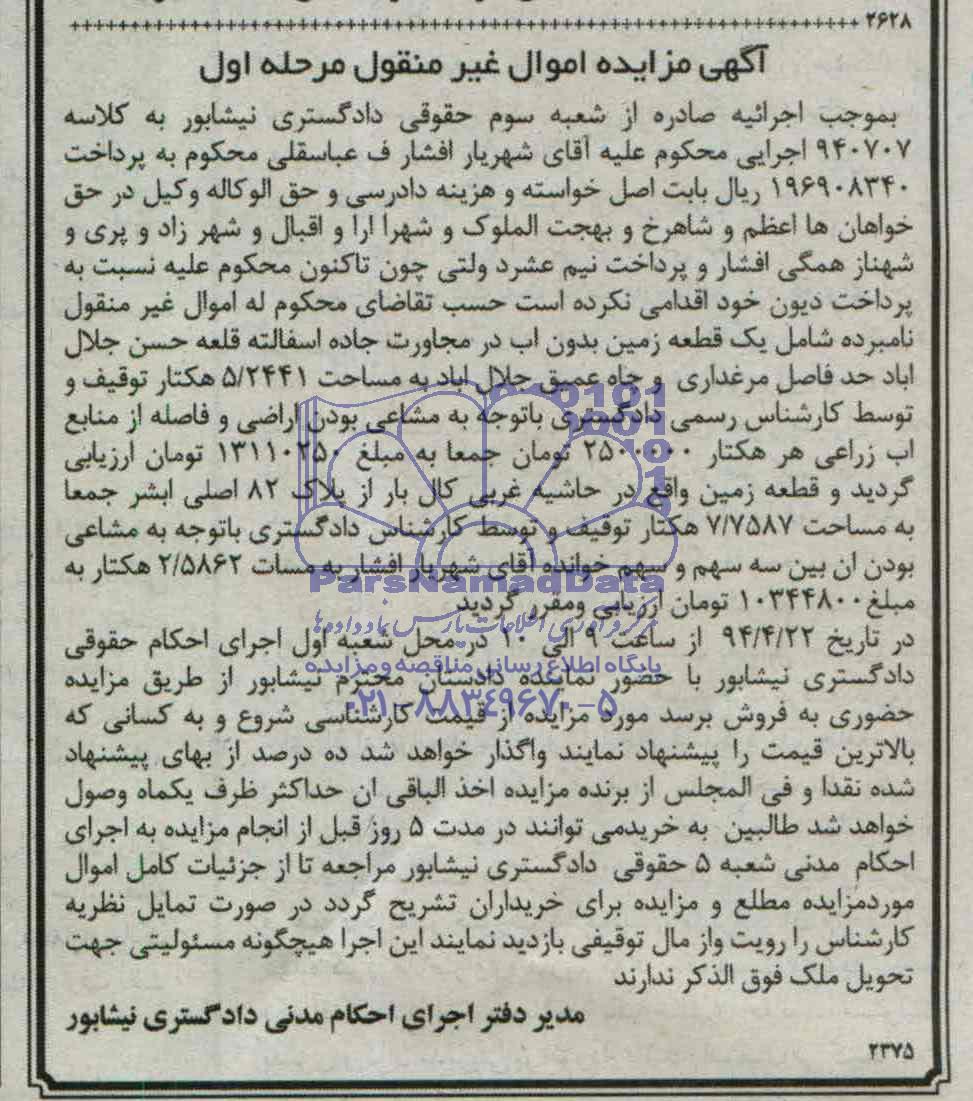 ۲۶۲۸
آگهی مزایده اموال غیر منقول مرحله اول
بموجب اجرائیه صادره از شعبه سوم حقوقی دادگستری نیشابور به کلاسه
۹۴۰۷۰۷ اجرایی محکوم علیه آقای شهریار افشار ف عباسقلی محکوم به پرداخت
۱۹۶۹۰۸۳۴۰ ریال بابت اصل خواسته و هزینه دادرسی و حق الوکاله وکیل در حق
خواهان ها اعظم و شاهرخ و بهجت الملوک و شهرا ارا و اقبال و شهر زاد و پری و
شهناز همگی افشار و پرداخت نیم عشرد ولتی چون تاکنون محکوم علیه نسبت به
پرداخت دیون خود اقدامی نکرده است حسب تقاضای محکوم له اموال غیر منقول
نامبرده شامل یک قطعه زمین بدون اب در مجاورت جاده اسفالته قلعه حسن جلال
اباد حد فاصل مرغداری و چاه عمیق جلال اباد به مساحت ۵/۲۴۴۱ هکتار توقیف و
توسط کارشناس رسمی دادگستری باتوجه به مشاعی بودن اراضی و فاصله از منابع
اب زراعی هر هکتار ۲۵۰۰۰۰۰ تومان جمعا به مبلغ ۱۳۱۱۰۲۵۰ تومان ارزیابی
گردید و قطعه زمین واقع در حاشیه غربی کال بار از پلاک ۸۲ اصلی ابشر جمعا
به مساحت ۷/۷۵۸۷ هکتار توقیف و توسط کارشناس دادگستری باتوجه به مشاعی
بودن ان بین سه سهم و سهم خوانده آقای شهریار افشار به مسات ۲/۵۸۶۲ هکتار به
مبلغ ۱۰۳۴۴۸۰۰ تومان ارزیابی ومقرر گردید
در تاریخ ۹۴/۴/۲۲ از ساعت ۹ الی ۱۰ در محل شعبه اول اجرای احکام حقوقی
دادگستری نیشابور با حضور نماینده دادستان محترم نیشابور از طریق مزایده
حضوری به فروش برسد مورد مزایده از قیمت کارشناسی شروع و به کسانی که
بالاترین قیمت را پیشنهاد نمایند واگذار خواهد شد ده درصد از بهای پیشنهاد
شده نقدا و فی المجلس از برنده مزایده اخذ الباقی ان حداکثر ظرف یکماه وصول
خواهد شد طالبین به خریدمی توانند در مدت ۵ روز قبل از انجام مزایده به اجرای
احکام مدنی شعبه ۵ حقوقی دادگستری نیشابور مراجعه تا از جزئیات کامل اموال
موردمزایده مطلع و مزایده برای خریداران تشریح گردد در صورت تمایل نظریه
کارشناس را رویت واز مال توقیفی بازدید نمایند این اجرا هیچگونه مسئولیتی جهت
تحویل ملک فوق الذکر ندارند
مدیر دفتر اجرای احکام مدنی دادگستری نیشابور
۲۳۷۵
ParsNamadData
مرکز فرآوری اطلاعات پارس نماد داده ها
پایگاه اطلاع رسانی مناقصه و مزایده
۰۲۱-۸۸۳۴۹۶۷۰-۵